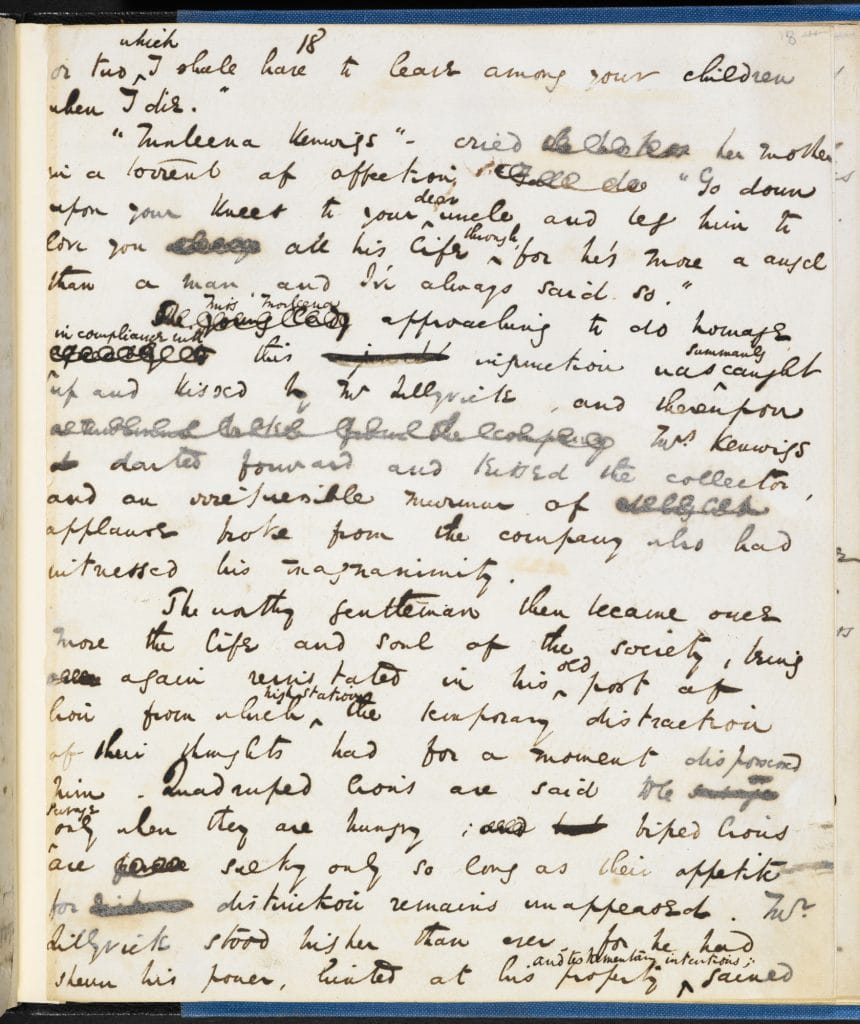 18
or two which I shall have to leave among your children
when I die."
"Morleena Kenwigs"- cried her mother
in a torrent of affection, "Go down
upon your knees to your dear uncle, and beg him to
love you all his life through, for he's more a angel
than a man, and I've always said so."
Miss Morleena approaching to do homage
in compliance with this injunction was summarily caught
up and kissed by Mr Lillyvick, and thereupon
Mrs Kenwigs
darted forward and kissed the collector,
and an irrepressible murmur of
applause broke from the company who had
witnessed his magnanimity.
The worthy gentleman then became once
more the life and soul of the society, being
again reinstated in his old post of
lion from which high station the temporary distraction
of their thoughts had for a moment dispossessed
him. Quadruped lions are said to be savage
only when they are hungry; biped lions
are sulky only so long as their appetite
for distinction remains unappeased. Mr
Lillyvick stood higher than ever, for he had
shewn his power, hinted at his property and testamentary intentions; gained